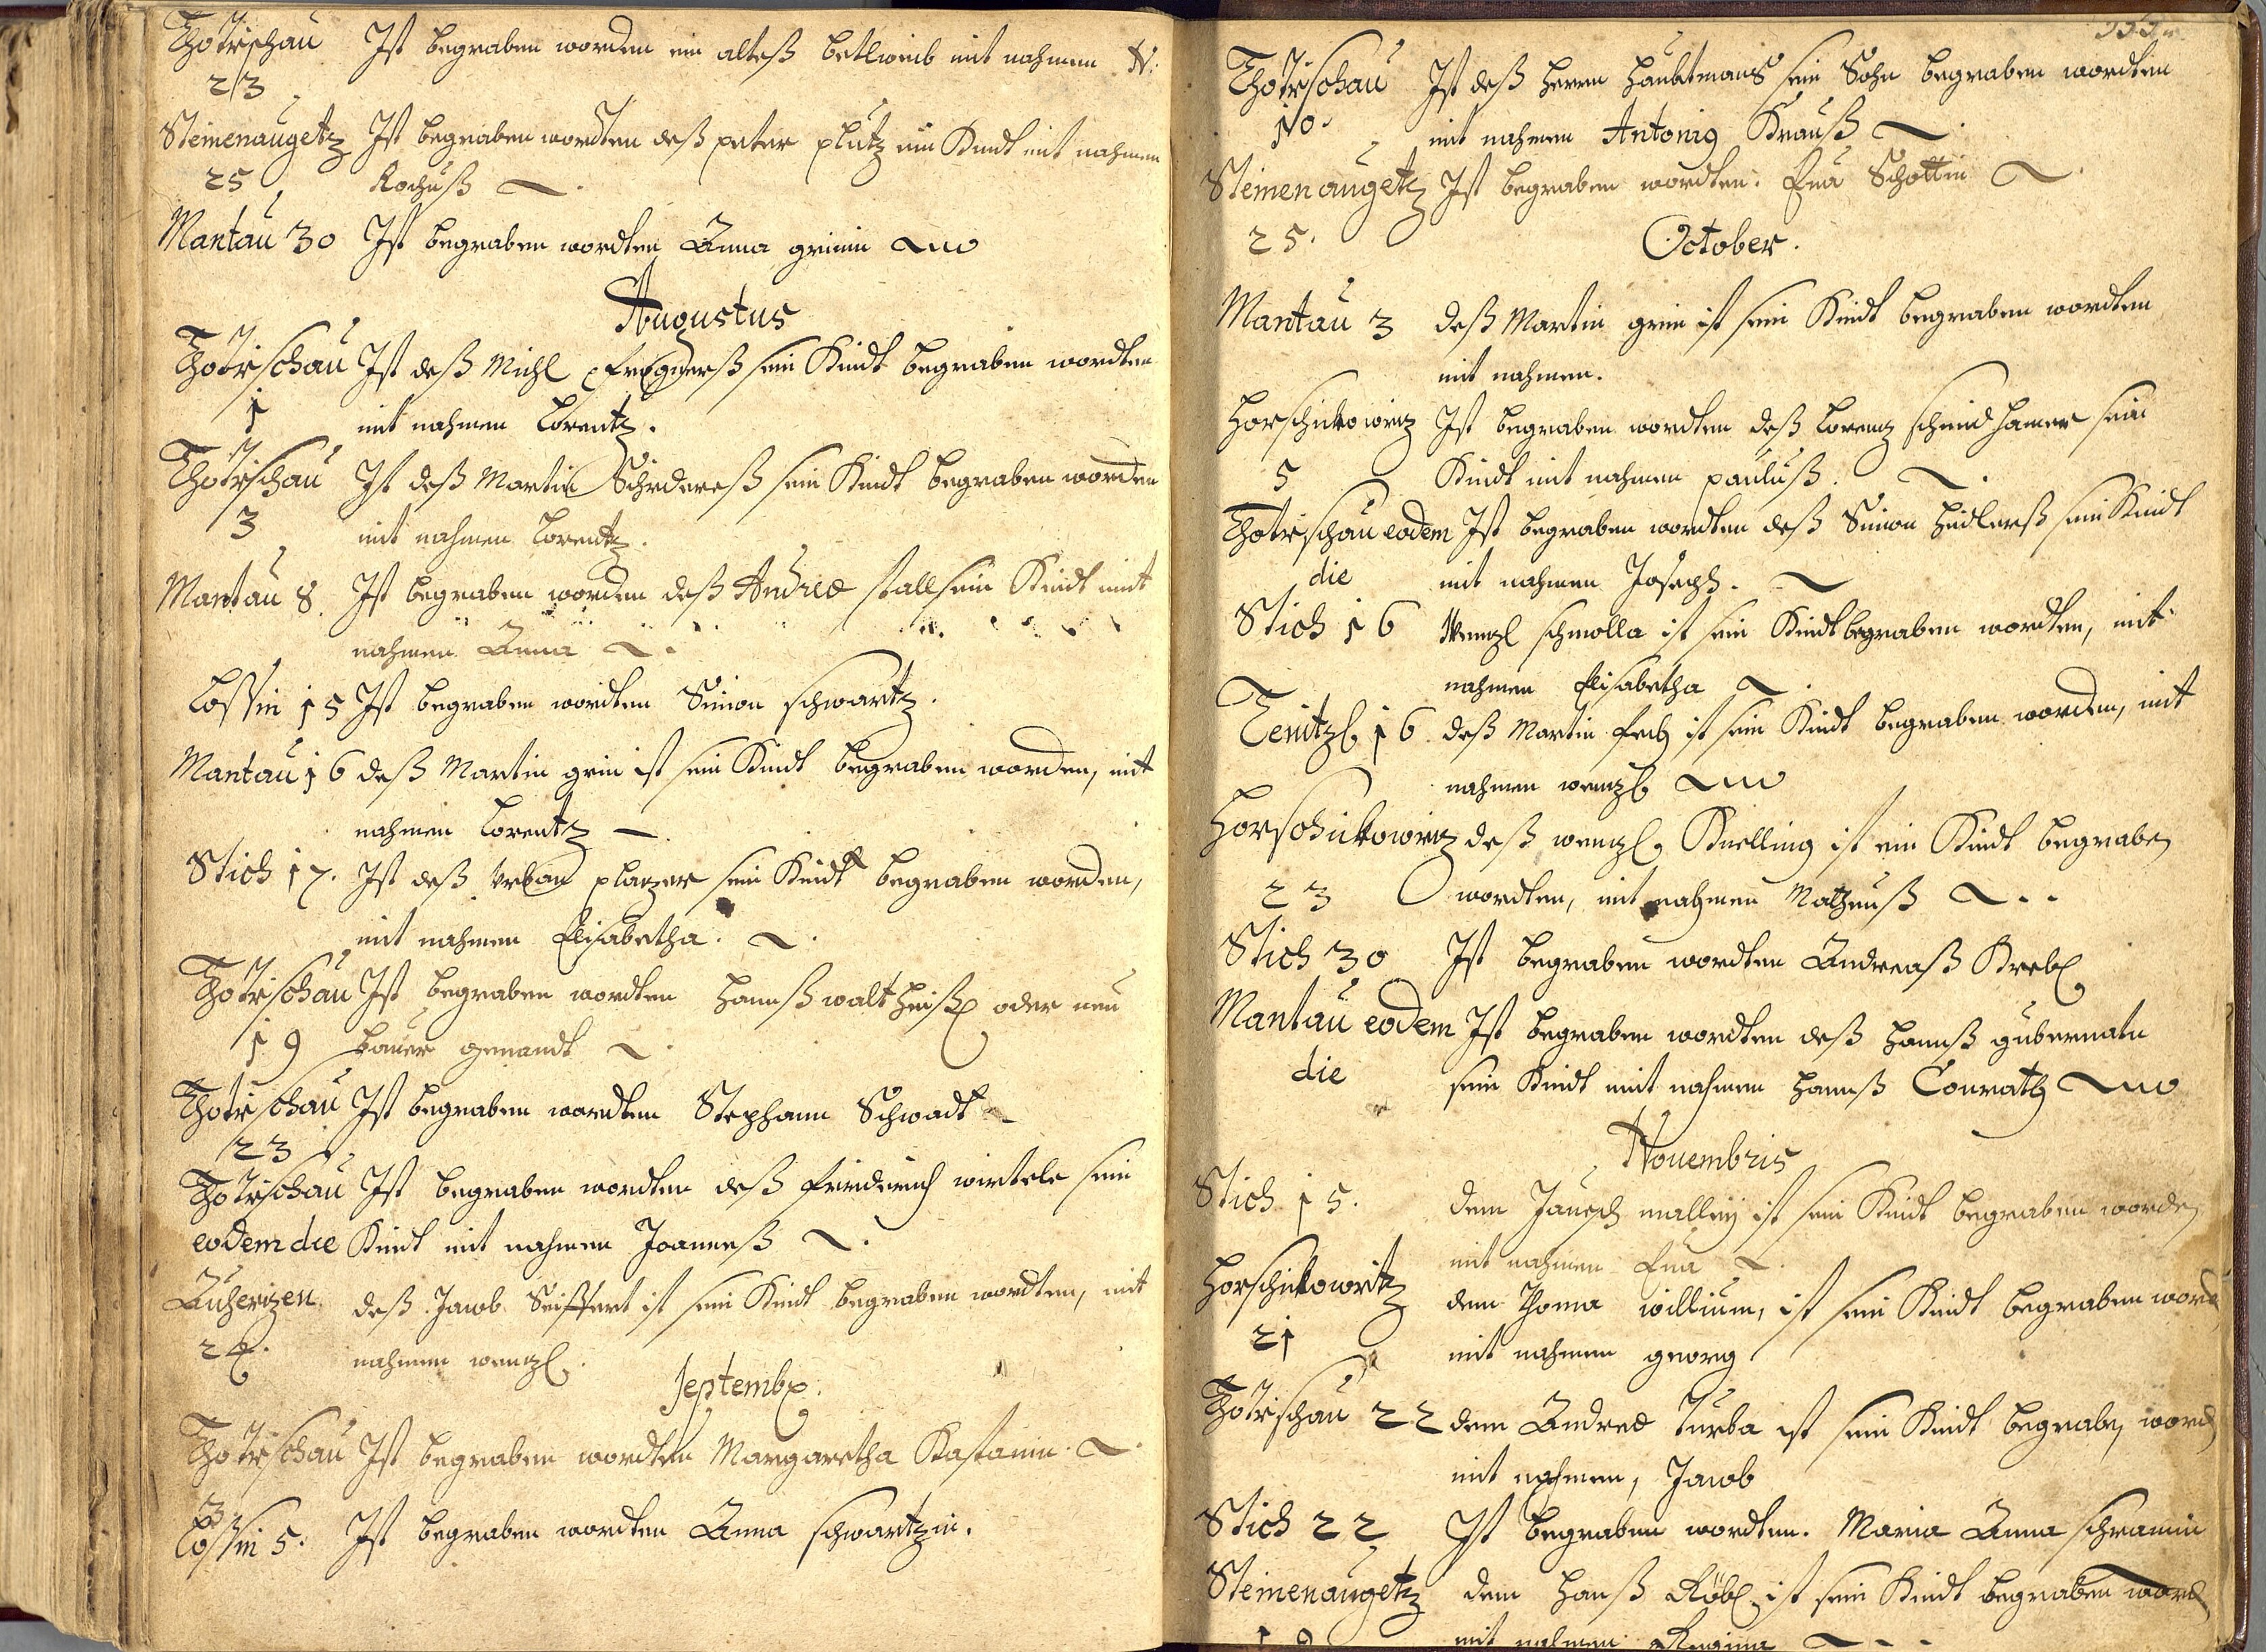 Thotrschau Ist begraben worden ein alteß betlweib mit nahmen N:
23
Steinenaugetz Ist begraben wordten deß peter plutz ein Kindt mit nahmen
25 Rochuß
Mantau 30 Ist begraben wordten Anna grinin
Augustus
Thotrschau Ist deß Michl sein Kindt begraben wordten
1 mit nahmen Lorentz.
Thotrschau Ist deß Martin sein Kindt begraben worden
3 mit nahmen Lorentz.
Mantau 8. Ist begraben worden deß Andreæ stall sein Kindt mit
nahmen Anna
Lossin 15 Ist begraben wordten Simon schwartz.
Mantau 16 deß Martin grin ist sein Kindt begraben worden, mit
nahmen Lorentz
Stich 17. Ist deß Urban plazer sein Kindt begraben worden,
mit nahmen Elisabetha.
Thotrschau Ist begraben wordten Hannß walt oder neu
19 bauer genandt
Thotrschau Ist begraben wordten Stephann Schwadt
23
Thotrschau Ist begraben wordten deß Friderich wirtele sein
eodem die Kindt mit nahmen Joanneß
Zuherizen deß Jacob Seiffert ist sein Kindt begraben wordten, mit
nahmen wenzl.
Septembr.
Thotrschau Ist begraben wordten Margaretha Kastanin.
3
Lossin 5. Ist begraben wordten Anna schwartzin.
Thotrschau Ist deß Herrn Haubtmans sein Sohn begraben wordten
10. mit nahmen Antonig Krauß
Steinenaugetz Ist begraben wordten. Eua Schottin
25. October.
Mantau 3 deß Martin grin ist sein Kindt begraben wordten
mit nahmen.
Horschickowitz Ist begraben wordten deß Lorenz schmidhamer sein
5 Kindt mit nahmen pauluß.
Thotrschau eodem Ist begraben wordten deß Simon Hidlerß sein Kindt
die mit nahmen Joseph.
Stich 16 Wenzl schmolla ist sein Kindt begraben wordten, mit
nahmen Elisabetha
Tenitzl 16 deß Martin ist sein Kindt begraben worden, mit
nahmen wenzl
Horschickowitz deß wenzl Knelling ist ein Kindt begraben
23 wordten, mit nahmen Matheuß
Stich 30 Ist begraben wordten Andreaß Krebl
Mantau eodem Ist begraben wordten deß Hannß gubernatn
die sein Kindt mit nahmen Hannß Conrath
Nouembris
Stich 15. dem malley ist sein Kindt begraben worden
mit nahmen Eua
Horschickowitz dem Thoma willium, ist sein Kindt begraben word
21 mit nahmen georg
Thotrschau 22 dem Andreæ Turba ist sein Kindt begraben word
mit nahmen, Jacob
Stich 22 Ist begraben wordten. Maria Anna schramin
Steinenaugetz dem Hanß Röbl ist sein Kindt begraben word
19 mit nahmen Regina